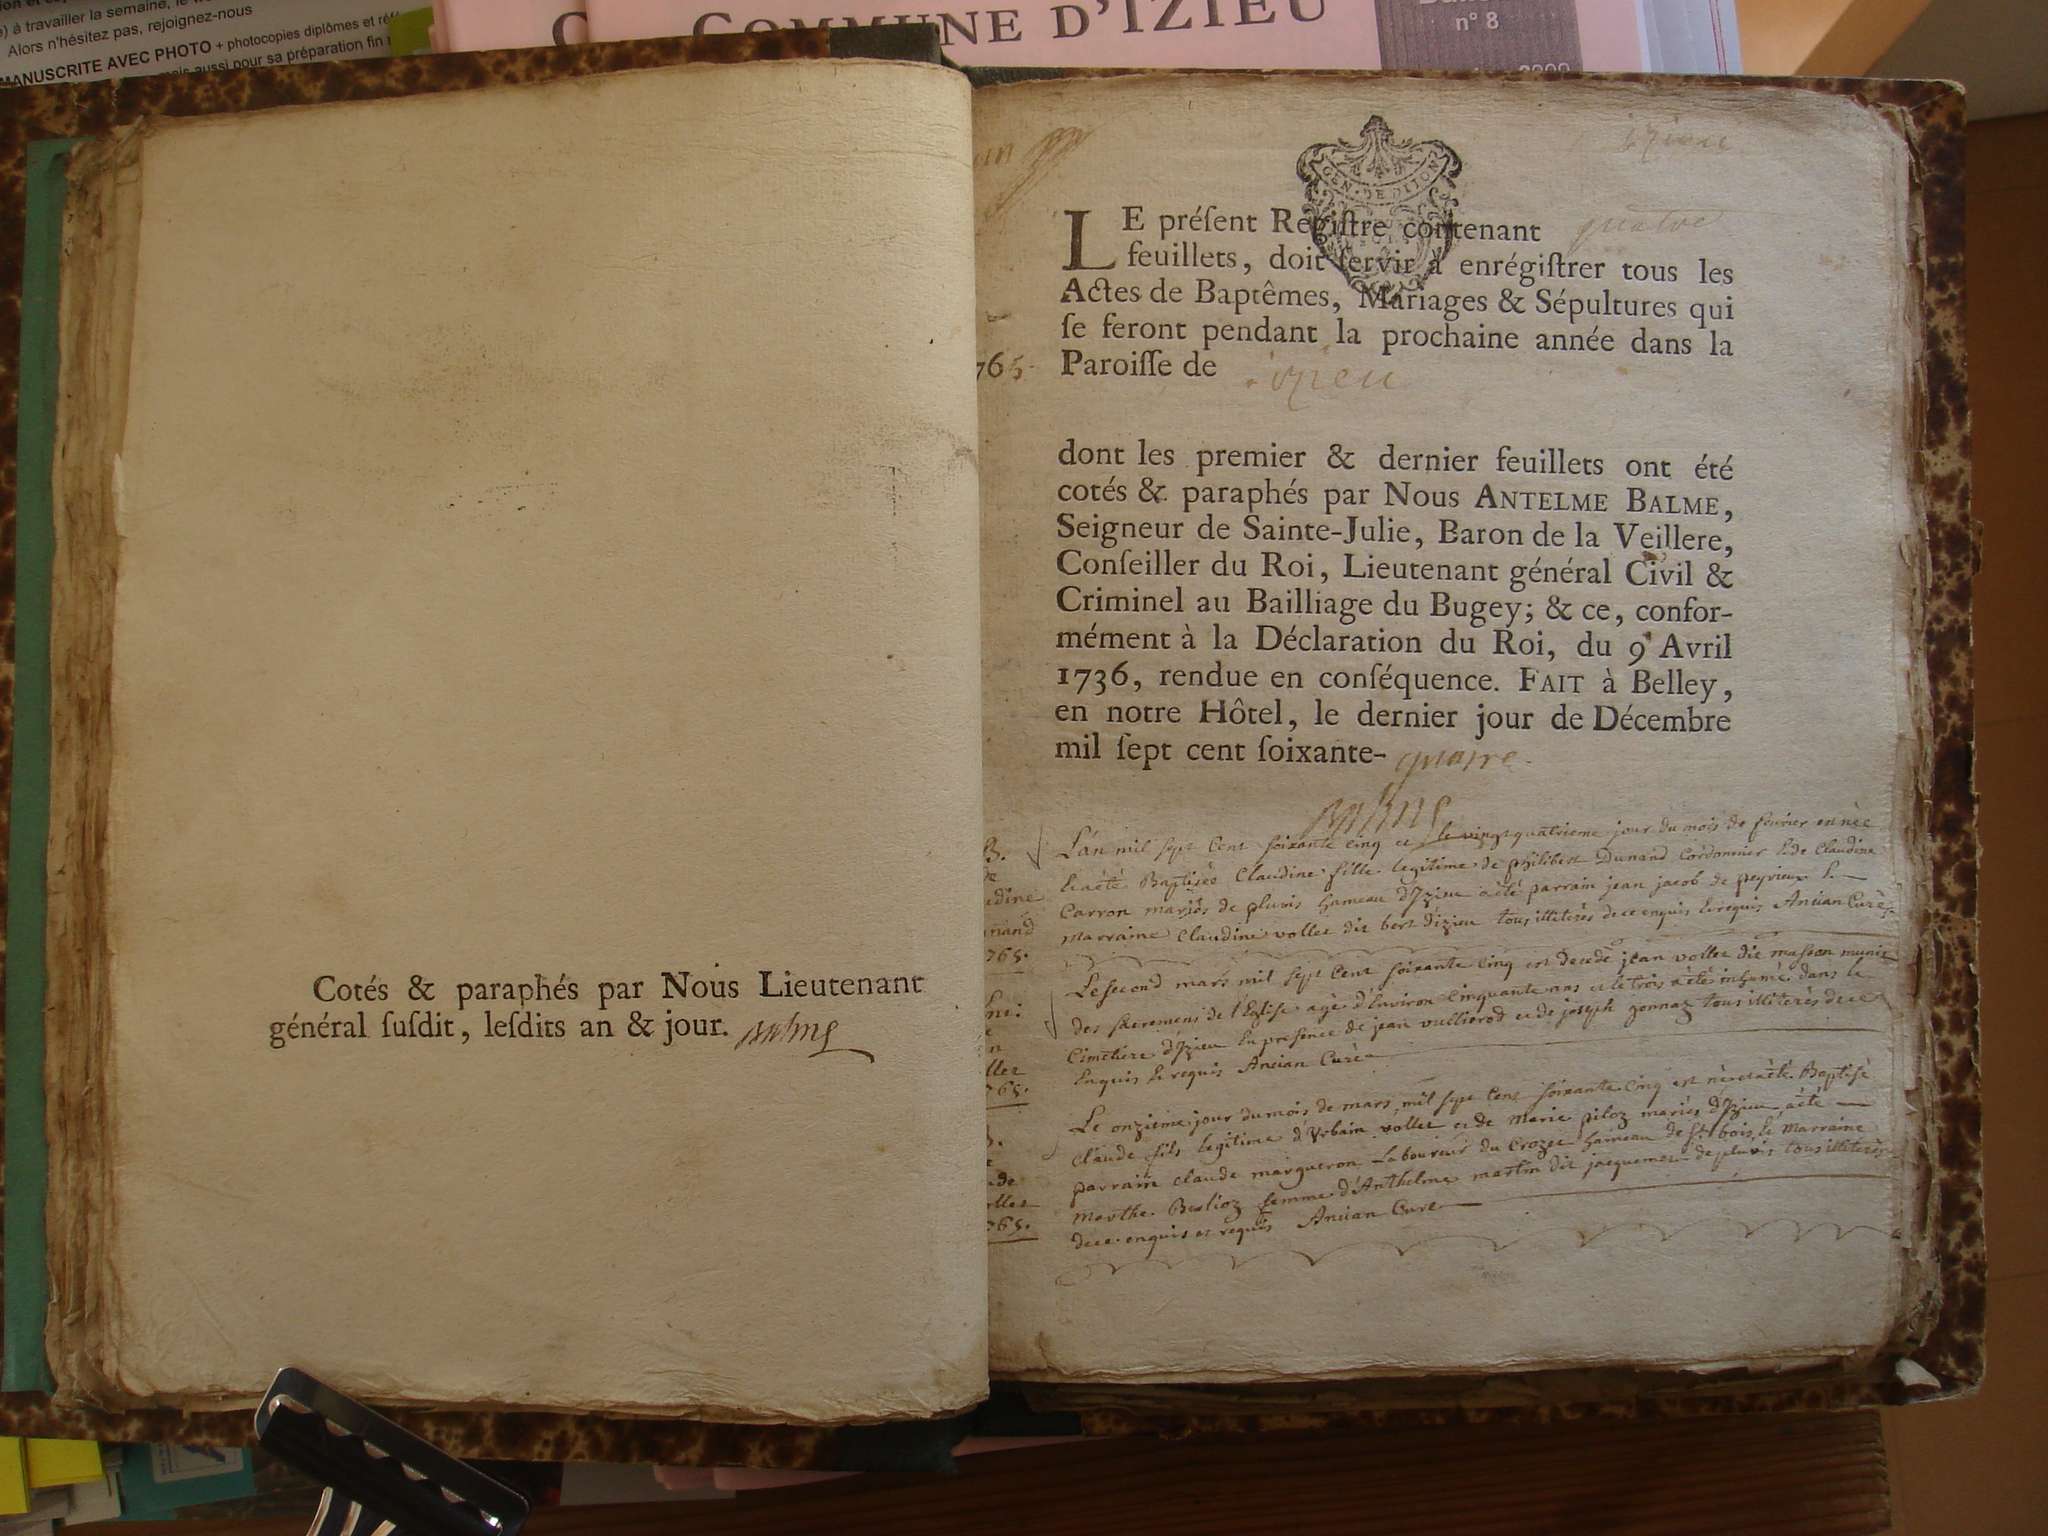 ) à travailler la semaine, le
Alors n'hésitez pas, rejoignez-nous
MANUSCRITE AVEC PHOTO + photocopies diplômes et
mais aussi pour sa préparation fin
COMMUNE D'IZIEU
n° 8
Cotés & paraphés par Nous Lieutenant
général ſuſdit, leſdits an & jour. Balme
GEN. DE DIJON
LE préſent Regiſtre contenant quatre
feuillets, doit ſervir à enrégiſtrer tous les
Actes de Baptêmes, Mariages & Sépultures qui
ſe feront pendant la prochaine année dans la
765. Paroiſſe de izieu
dont les premier & dernier feuillets ont été
cotés & paraphés par Nous ANTELME BALME,
Seigneur de Sainte-Julie, Baron de la Veillere,
Conſeiller du Roi, Lieutenant général Civil &
Criminel au Bailliage du Bugey; & ce, confor-
mément à la Déclaration du Roi, du 9 Avril
1736, rendue en conſéquence. FAIT à Belley,
en notre Hôtel, le dernier jour de Décembre
mil ſept cent ſoixante- quatre.
Balme
B.
L'an mil sept Cent soixante cinq et le vingt quatrieme jour du mois de fevrier est née
Et a été Baptisée Claudine fille legitime de philibert Dunand Cordonnier & de Claudine
Carron mariés de pluvis hameau d'Izieu a été parrain jean jacob de peyrieu &
Marraine Claudine vollet dit bert d'izieu tous illiterés de ce enquis & requis Ancian Curé
765.
Le second mars mil sept Cent soixante cinq est decedé jean vollet dit masson munie
des sacremens de l'Eglise agé d'Environ Cinquante ans et le trois a été inhumé dans le
Cimetiere d'Izieu En presence de jean vullierod et de joseph gonnaz tous illiterés de ce
Enquis & requis Ancian Curé
765.
Le onzieme jour du mois de mars mil sept Cent soixante Cinq est né et a été Baptisé
Claude fils legitime d'Urbain vollet et de Marie piloz mariés d'Izieu a été
parrain Claude margueron Laboureur du Crozet hameau de St bois & Marraine
Marthe Berlioz femme d'Anthelme martin dit jacquemet de pluvis tous illiterés
de ce enquis et requis Ancian Curé
765.